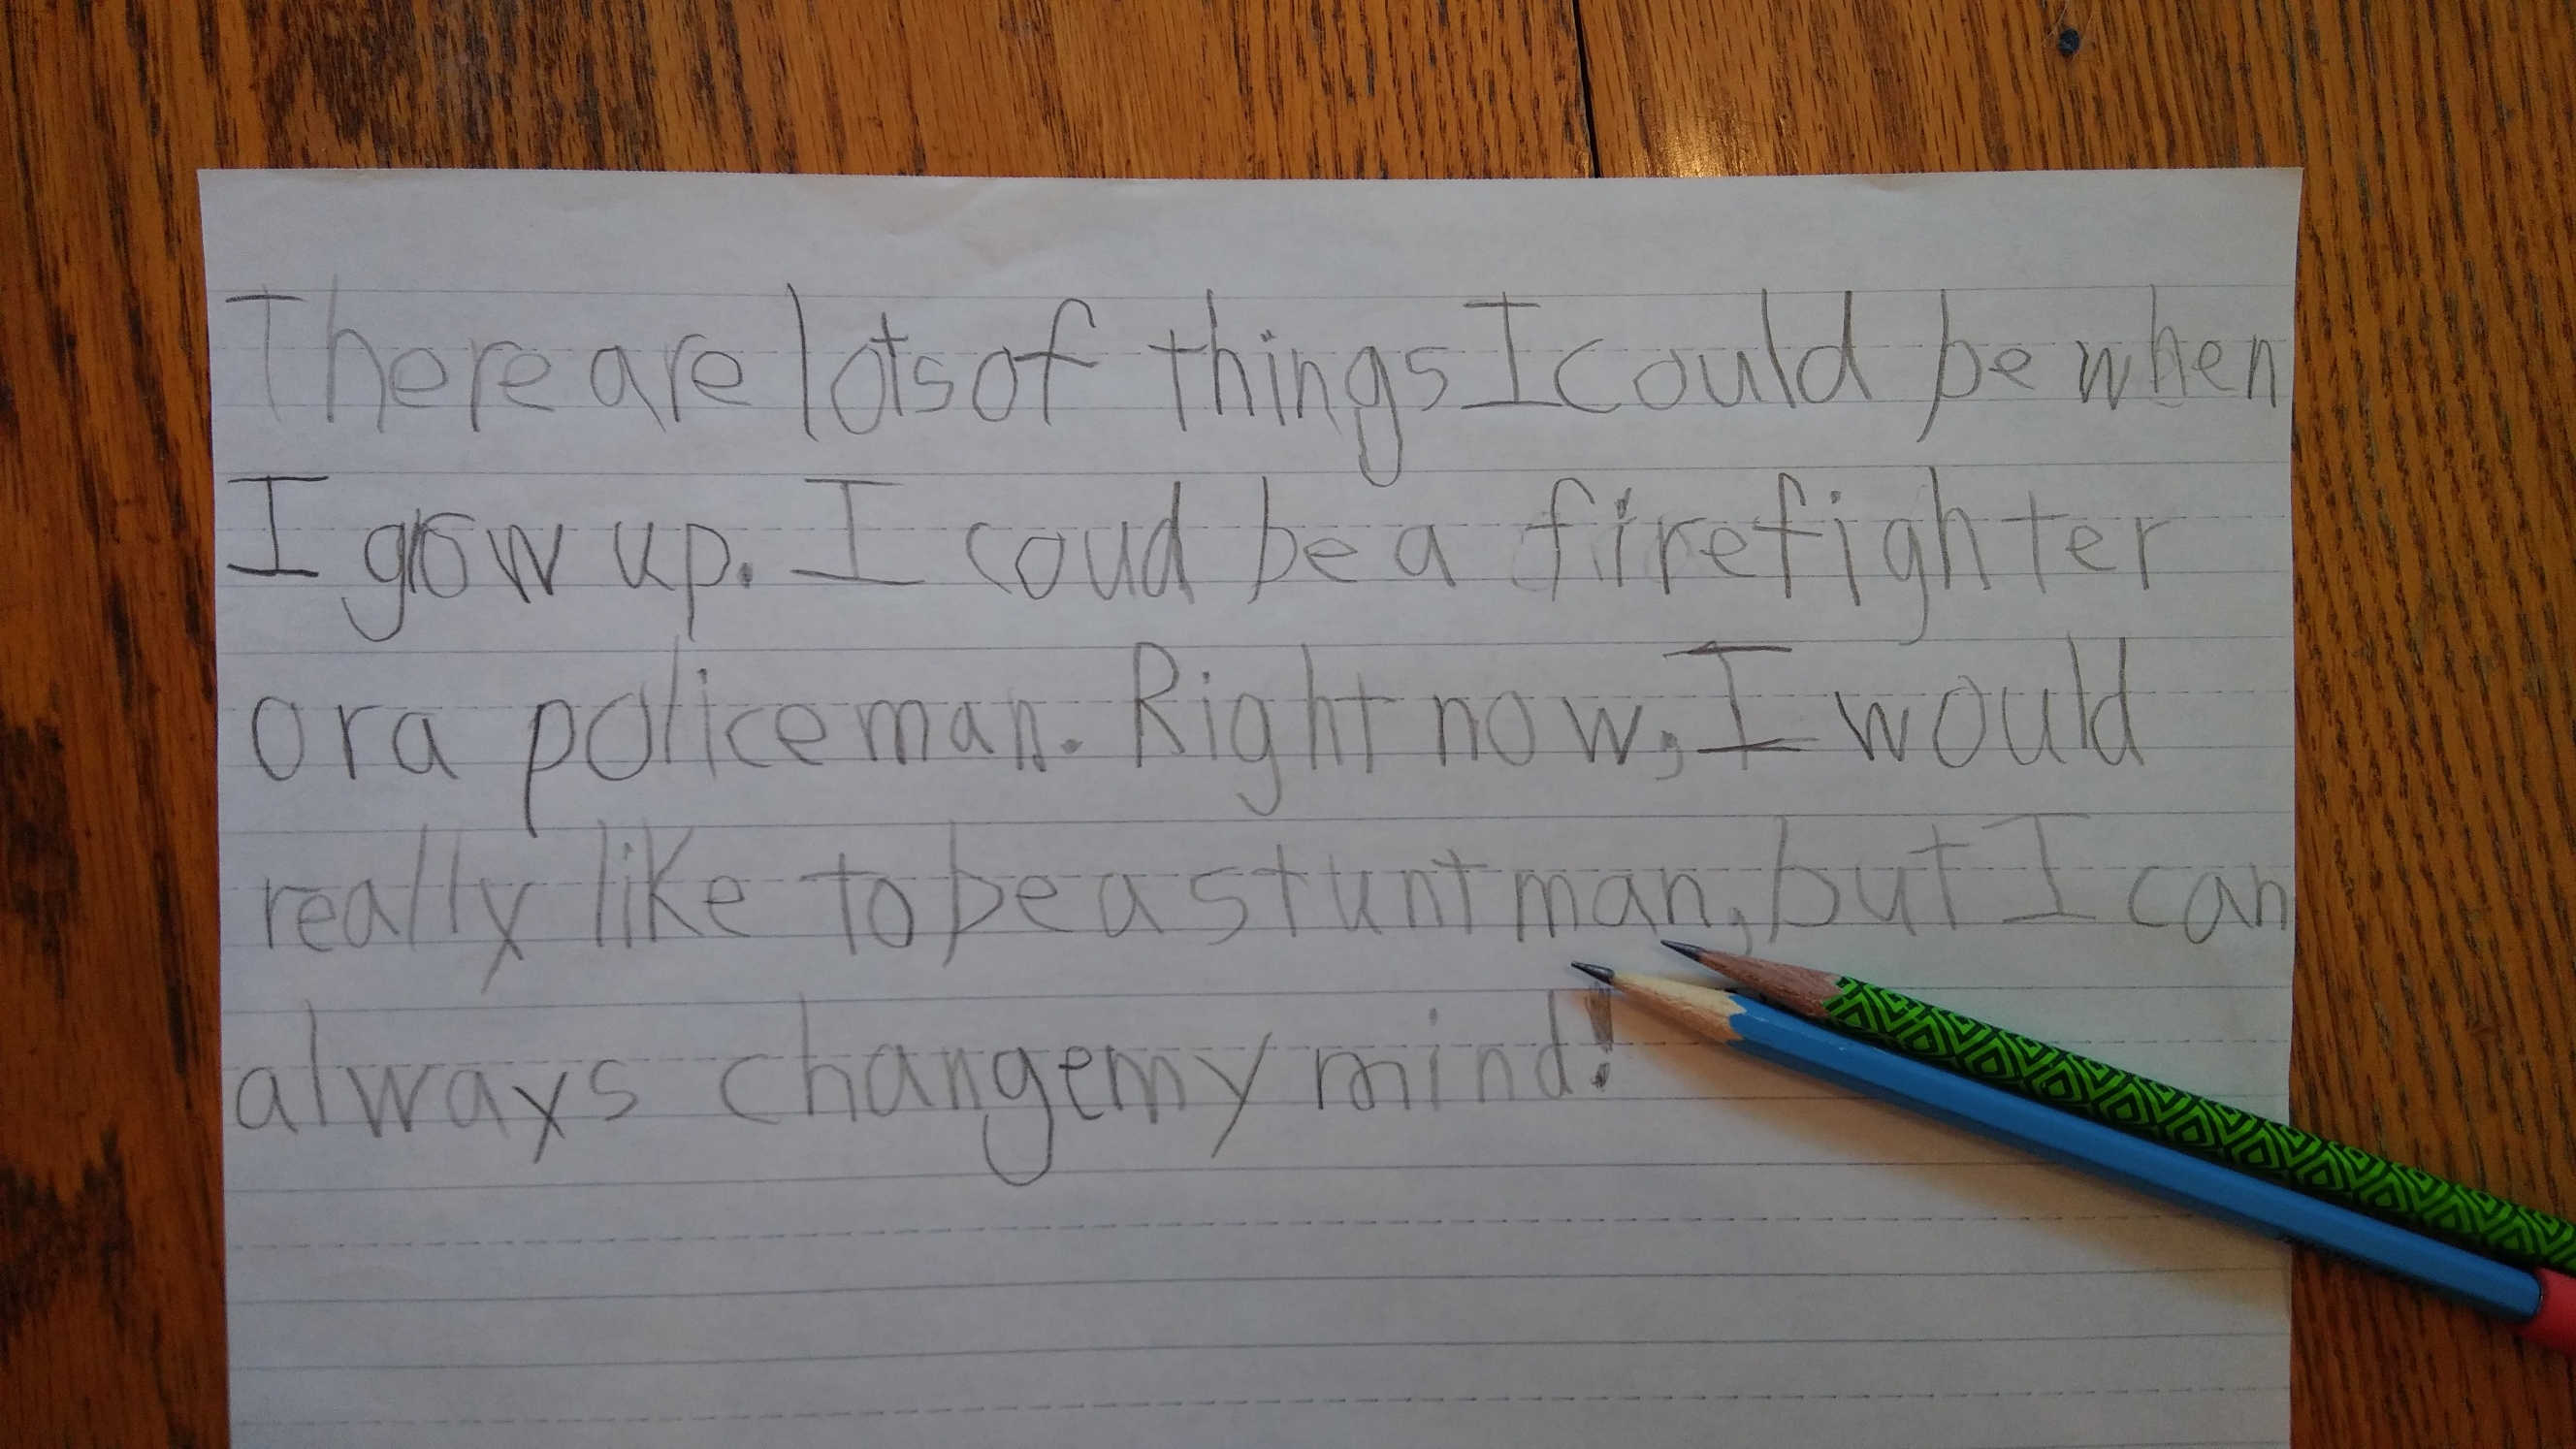 There are lots of things I could be when
I grow up. I coud be a firefighter
or a policeman. Right now, I would
really like to be a stuntman, but I can
always change my mind!